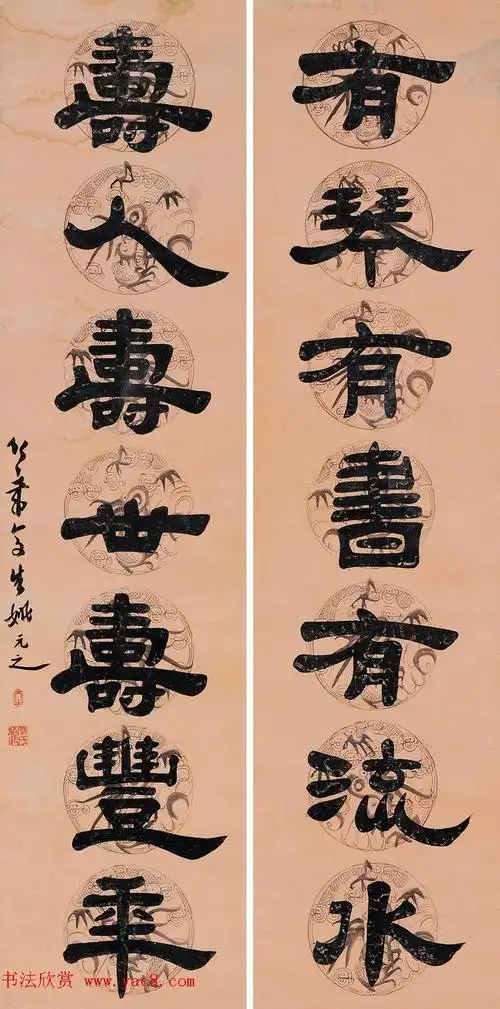 有琴有書有流水
壽人壽世壽豐年
姚元之
书法欣赏 www.yac8.com